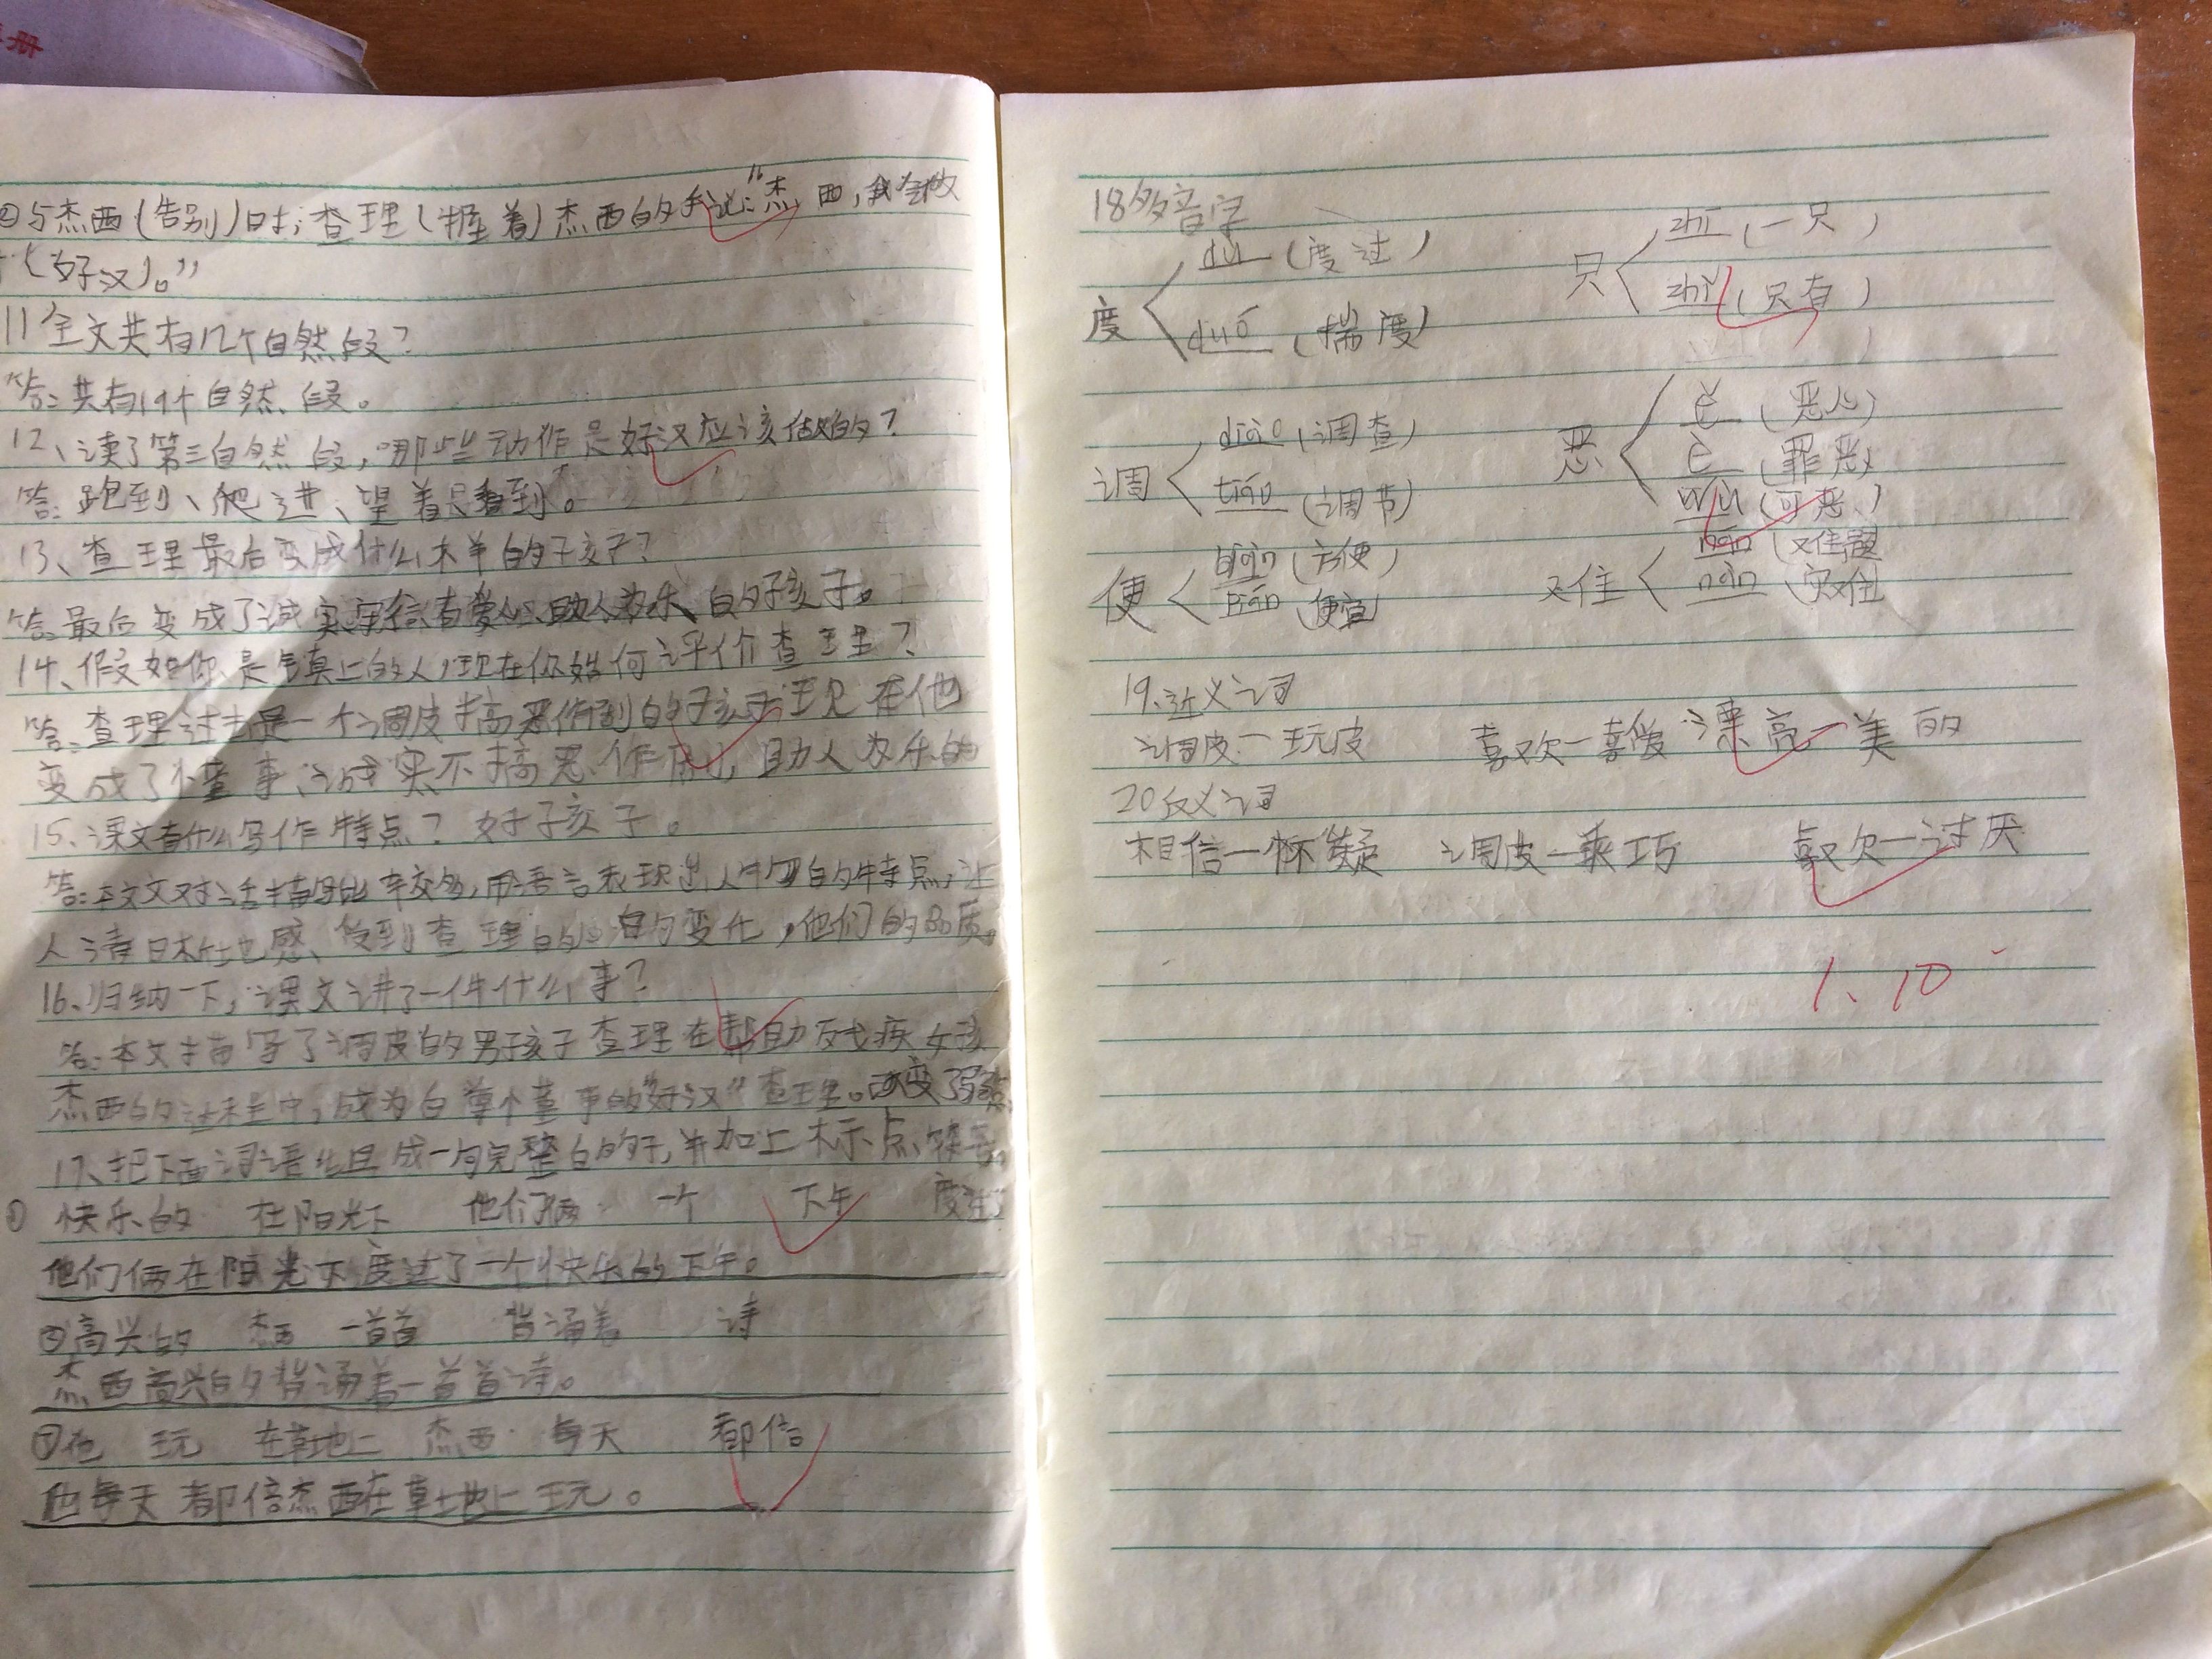 册
②与杰西(告别)时;查理(握着)杰西的手说:"杰西,我会做
(好汉)。"
11全文共有几个自然段?
答:共有19个自然段。
12、读了第三自然段,哪些动作是好汉应该做的?
答:跑到、爬进、望着是看到。
13、查理最后变成什么样的孩子?
答:最后变成了诚实守信有爱心、助人为乐的好孩子。
14、假如你是镇上的人,现在你如何评价查理?
答:查理过去是一个调皮搞恶作剧的孩子现在他
变成了个懂事、诚实不搞恶作剧,助人为乐的
好孩子。
15、课文有什么写作特点?
答:本文对话描写比较多,用语言表现出人物的特点,让
人清晰地感受到查理的变化,他们的品质。
16、归纳一下,课文讲了一件什么事?
答:本文描写了调皮的男孩子查理在帮助残疾女孩
杰西的过程中,成为的懂事的"好汉"查理。改变了
17、把下面词语组成一句完整的句子,并加上标点符号。
① 快乐的 在阳光下 他们俩 一个 下午 度过了
他们俩在阳光下度过了一个快乐的下午。
②高兴的 杰西 一首首 背诵着 诗
杰西高兴的背诵着一首首诗。
③他 玩 在草地上 杰西 每天 都陪
他每天都陪杰西在草地上玩。
18多音字
度 dù (度过) 只 zhī (一只)
duó (揣度) zhǐ (只有)
调 diào (调查) 恶 ě (恶心)
tiáo (调节) è (罪恶)
wù (可恶)
便 biàn (方便) 难 nán (难题
pián 便宜) nàn (灾难
19、近义词
调皮一玩皮 喜欢一喜爱 漂亮一美的
20反义词
相信一怀疑 调皮一乖巧 喜欢一讨厌
1、10